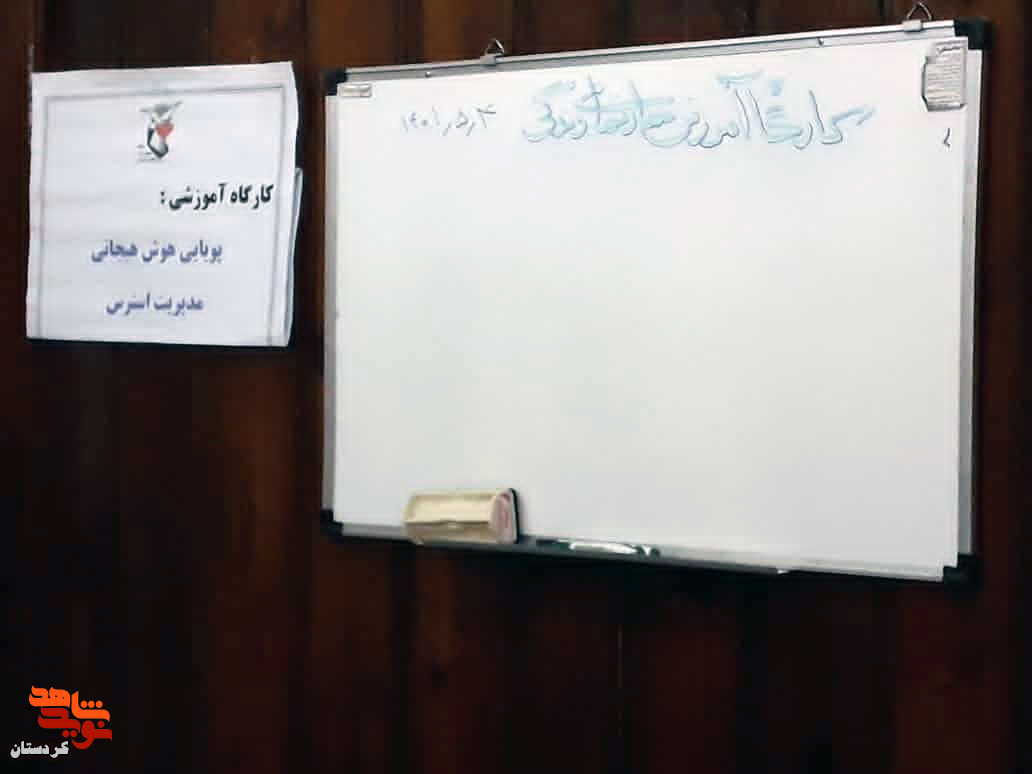 کارگاه آموزشی مهارتهای زندگی ۱۴۰۱٫۵٫۳
کارگاه آموزشی :
پویایی هوش هیجانی
مدیریت استرس
نوید شاهد
کردستان